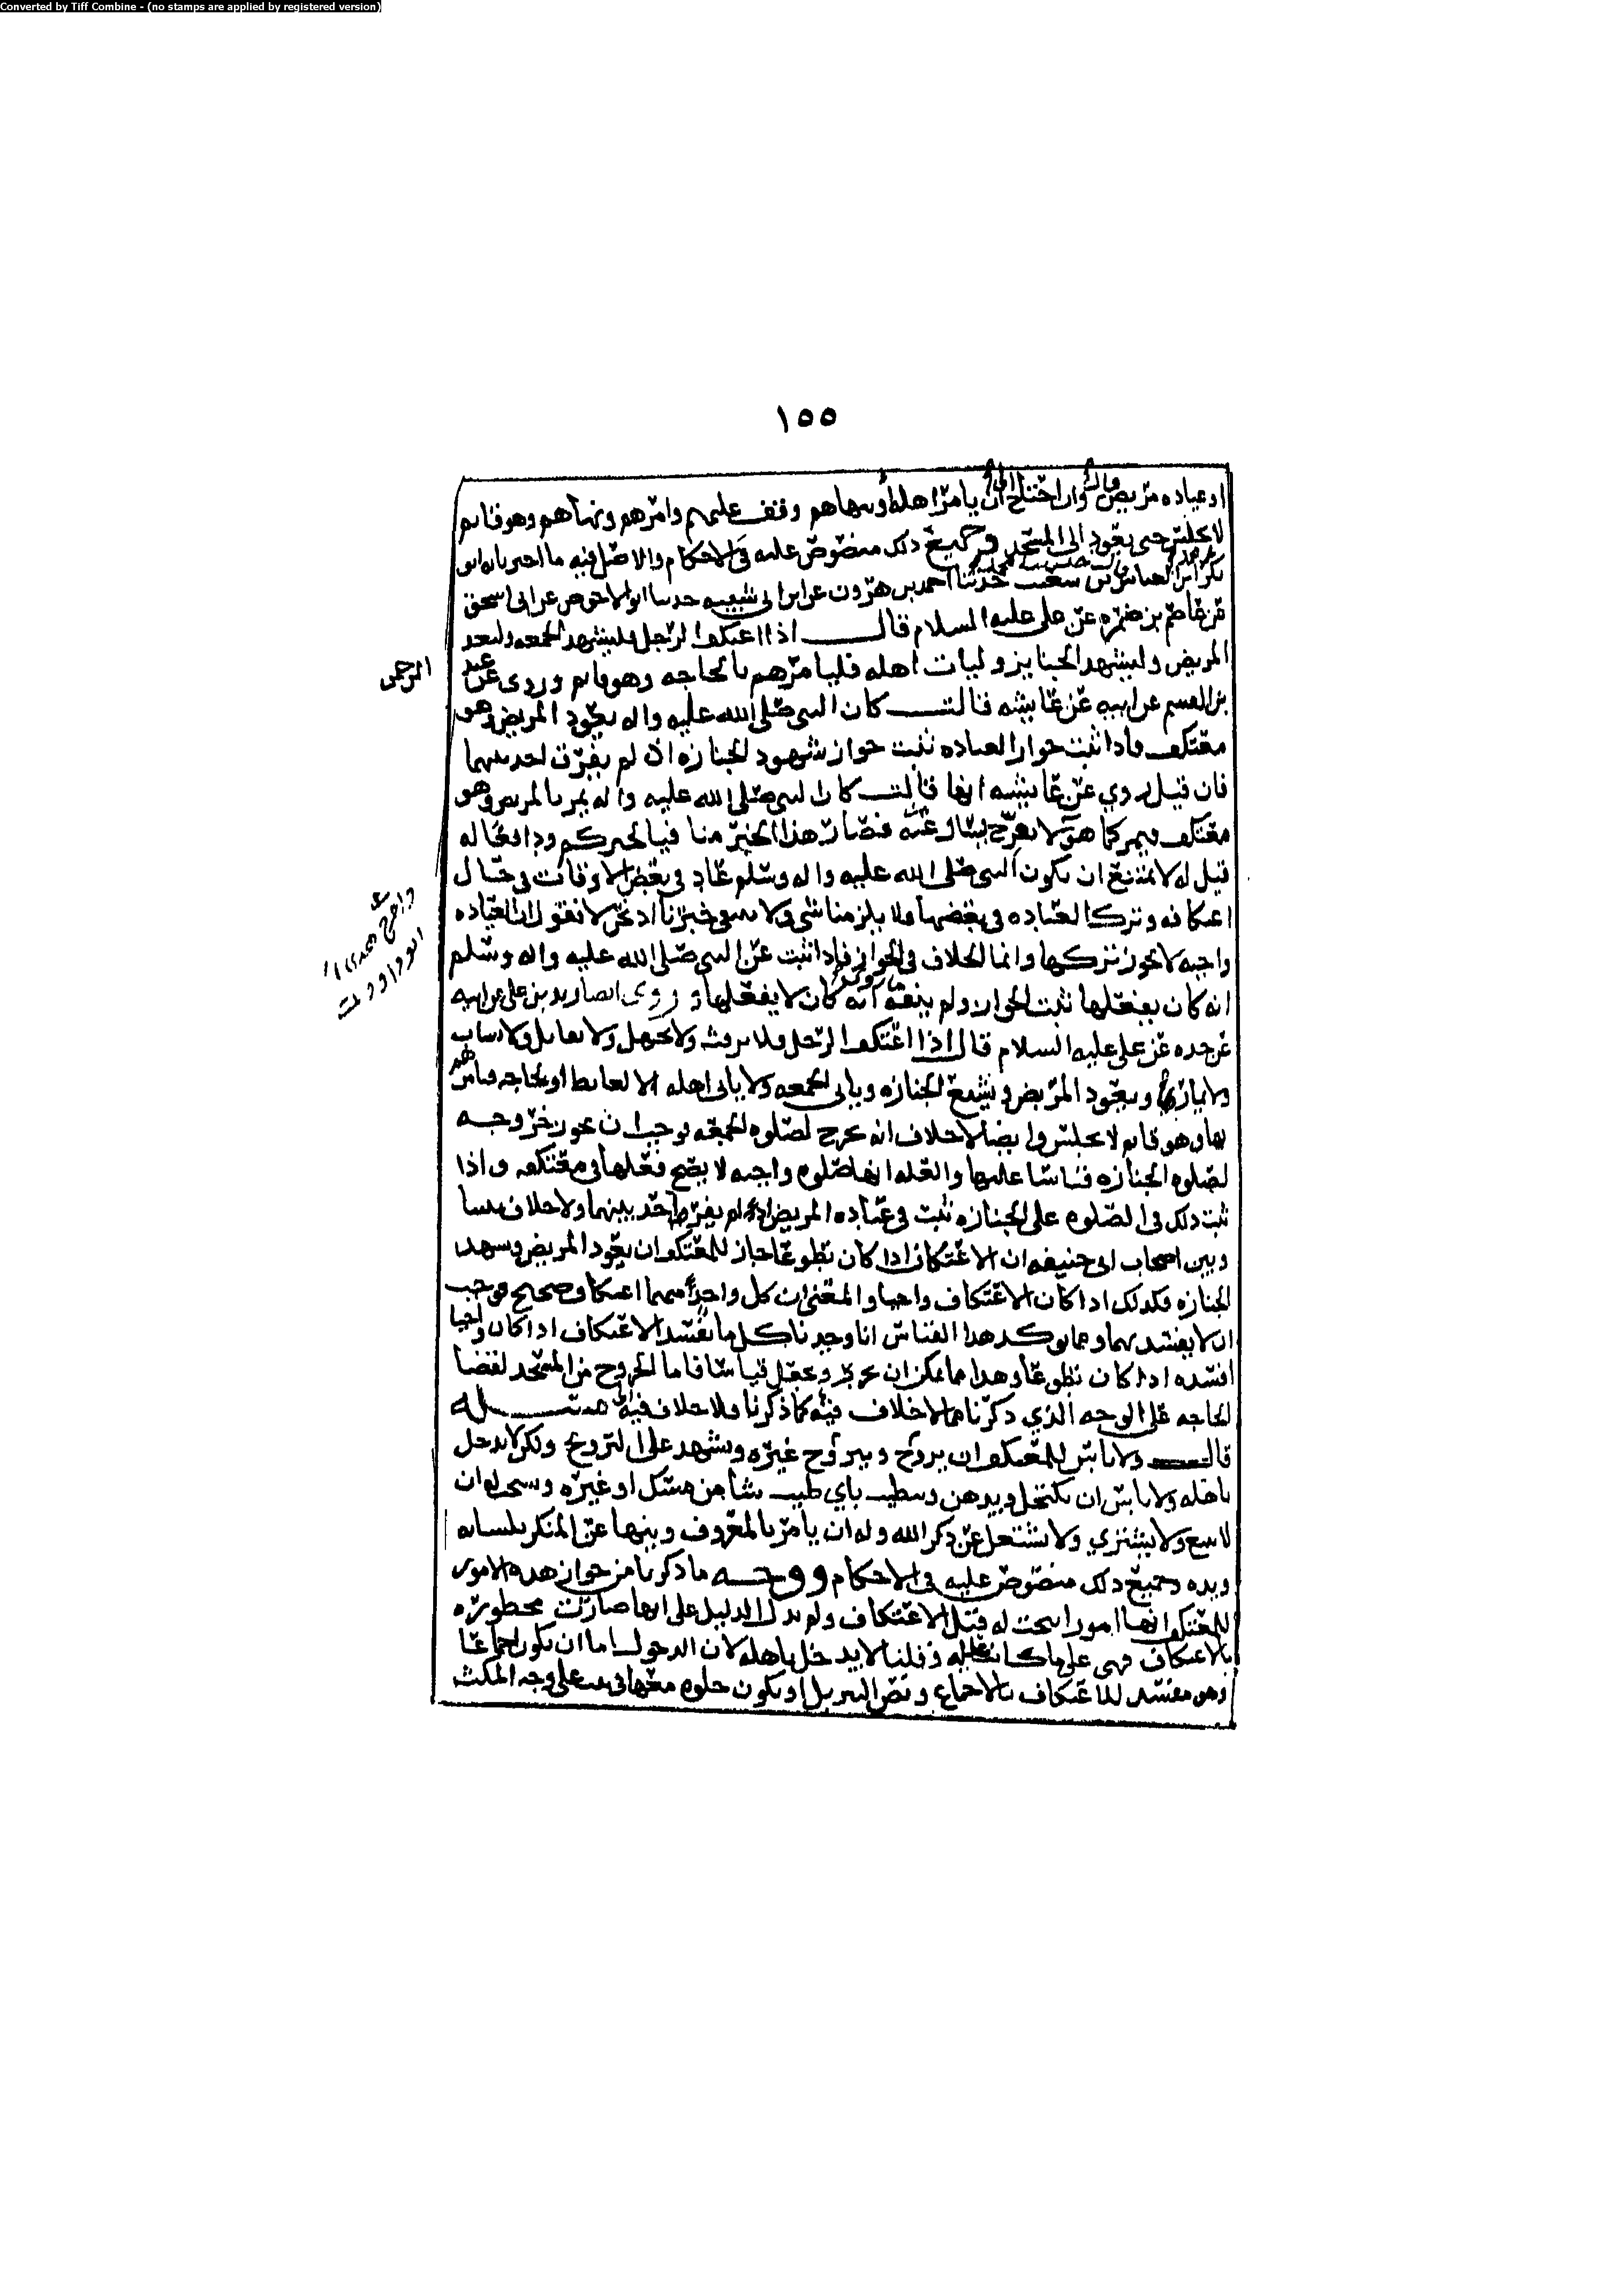 Converted by Tiff Combine - (no stamps are applied by registered version)
١٥٥
او عياده مريض قال وان احتاج الى ان يامر اهله او ينهاهم وقف عليهم وامرهم ونهاهم وهو قايم
لا يجلس حتى يعود الى المسجد وجميع ذلك منصوص عليه في الاحكام والاصل فيه ما اخبرنا به ابو
بكر حدثنا احمد بن هرون عن ابن ابي شيبه حدثنا ابو الاحوص عن ابي اسحق
عن عاصم بن ضمره عن علي عليه السلام قال اذا اعتكف الرجل فليشهد الجمعه وليعد
المريض وليشهد الجنايز وليات اهله فليامرهم بالحاجه وهو قايم وروى عن عبد
الرحمن
بن القسم عن ابيه عن عايشه قالت كان النبي صلى الله عليه واله يعود المريض وهو
معتكف فاذا ثبت جواز العياده ثبت جواز شهود الجنازه اذ لم يفرق احد بينهما
فان قيل روي عن عايشه انها قالت كان النبي صلى الله عليه واله يمر بالمريض وهو
معتكف فيمر كما هو لا يعرج يسال عنه فصار هذا الخبر منا فيا لخبركم ودافعا له
قيل له لا يمتنع ان يكون النبي صلى الله عليه واله وسلم عاد في بعض الاوقات في حال
اعتكافه وترك العياده في بعضها ولا يلزمنا شي ولا خبرنا اذ نحن لا نقول ان العياده
واجبه لا يجوز تركها وانما الخلاف في الجواز فاذا ثبت عن النبي صلى الله عليه واله وسلم
انه كان يفعلها ثبت الجواز ولم ينفه انه كان لا يفعلها وروى ايضا زيد بن علي عن ابيه
عن جده عن علي عليه السلام قال اذا اعتكف الرجل فلا يرفث ولا يجهل ولا يقاتل ولا يساب
ولا يماري ويعود المريض ويشيع الجنازه وياتي الجمعه ولا ياتي اهله الا لغايط او لحاجه فيامرهم
بها وهو قايم لا يجلس وايضا لا خلاف انه يخرج لصلوه الجمعه فوجب ان يجوز خروجه
لصلوه الجنازه قياسا عليها والعله انها صلوه واجبه لا يصح فعلها في معتكفه واذا
ثبت ذلك في الصلوه على الجنازه ثبت في عياده المريض اذ لم يفرق احد بينهما ولا خلاف بيننا
وبين اصحاب ابي حنيفه ان الاعتكاف اذا كان تطوعا جاز للمعتكف ان يعود المريض ويشهد
الجنازه فكذلك اذا كان الاعتكاف واجبا والمعنى ان كل واحد منهما اعتكاف صحيح فوجب
ان لا يفسد بهما ومما يوكد هذا القياس انا وجدنا كل ما يفسد الاعتكاف اذا كان واجبا
افسده اذا كان تطوعا وهذا مما يمكن ان يحرر ويجعل قياسا فاما الخروج من المسجد لقضا
الحاجه على الوجه الذي ذكرنا فلا خلاف فيه كما ذكرنا ولا خلاف فيه مسئله
قال ولا باس للمعتكف ان يزوج ويتزوج غيره ويشهد على التزويج ولكن لا يدخل
باهله ولا باس ان يكتحل ويدهن ويتطيب باي طيب شا من مسك او غيره ويستحب له ان
لا يبيع ولا يشتري ولا يشتغل عن ذكر الله وله ان يامر بالمعروف وينهى عن المنكر بلسانه
ويده وجميع ذلك منصوص عليه في الاحكام ووجه ما ذكرنا من جواز هذه الامور
للمعتكف انها امور ابيحت له قبل الاعتكاف ولم يدل الدليل على انها صارت محظوره
بالاعتكاف فهي على ما كانت عليه وقلنا لا يدخل باهله لان الدخول اما ان يكون جماعا
وهو مفسد للاعتكاف بالاجماع ونص التنزيل او يكون خلوه معها في بيت على وجه المكث